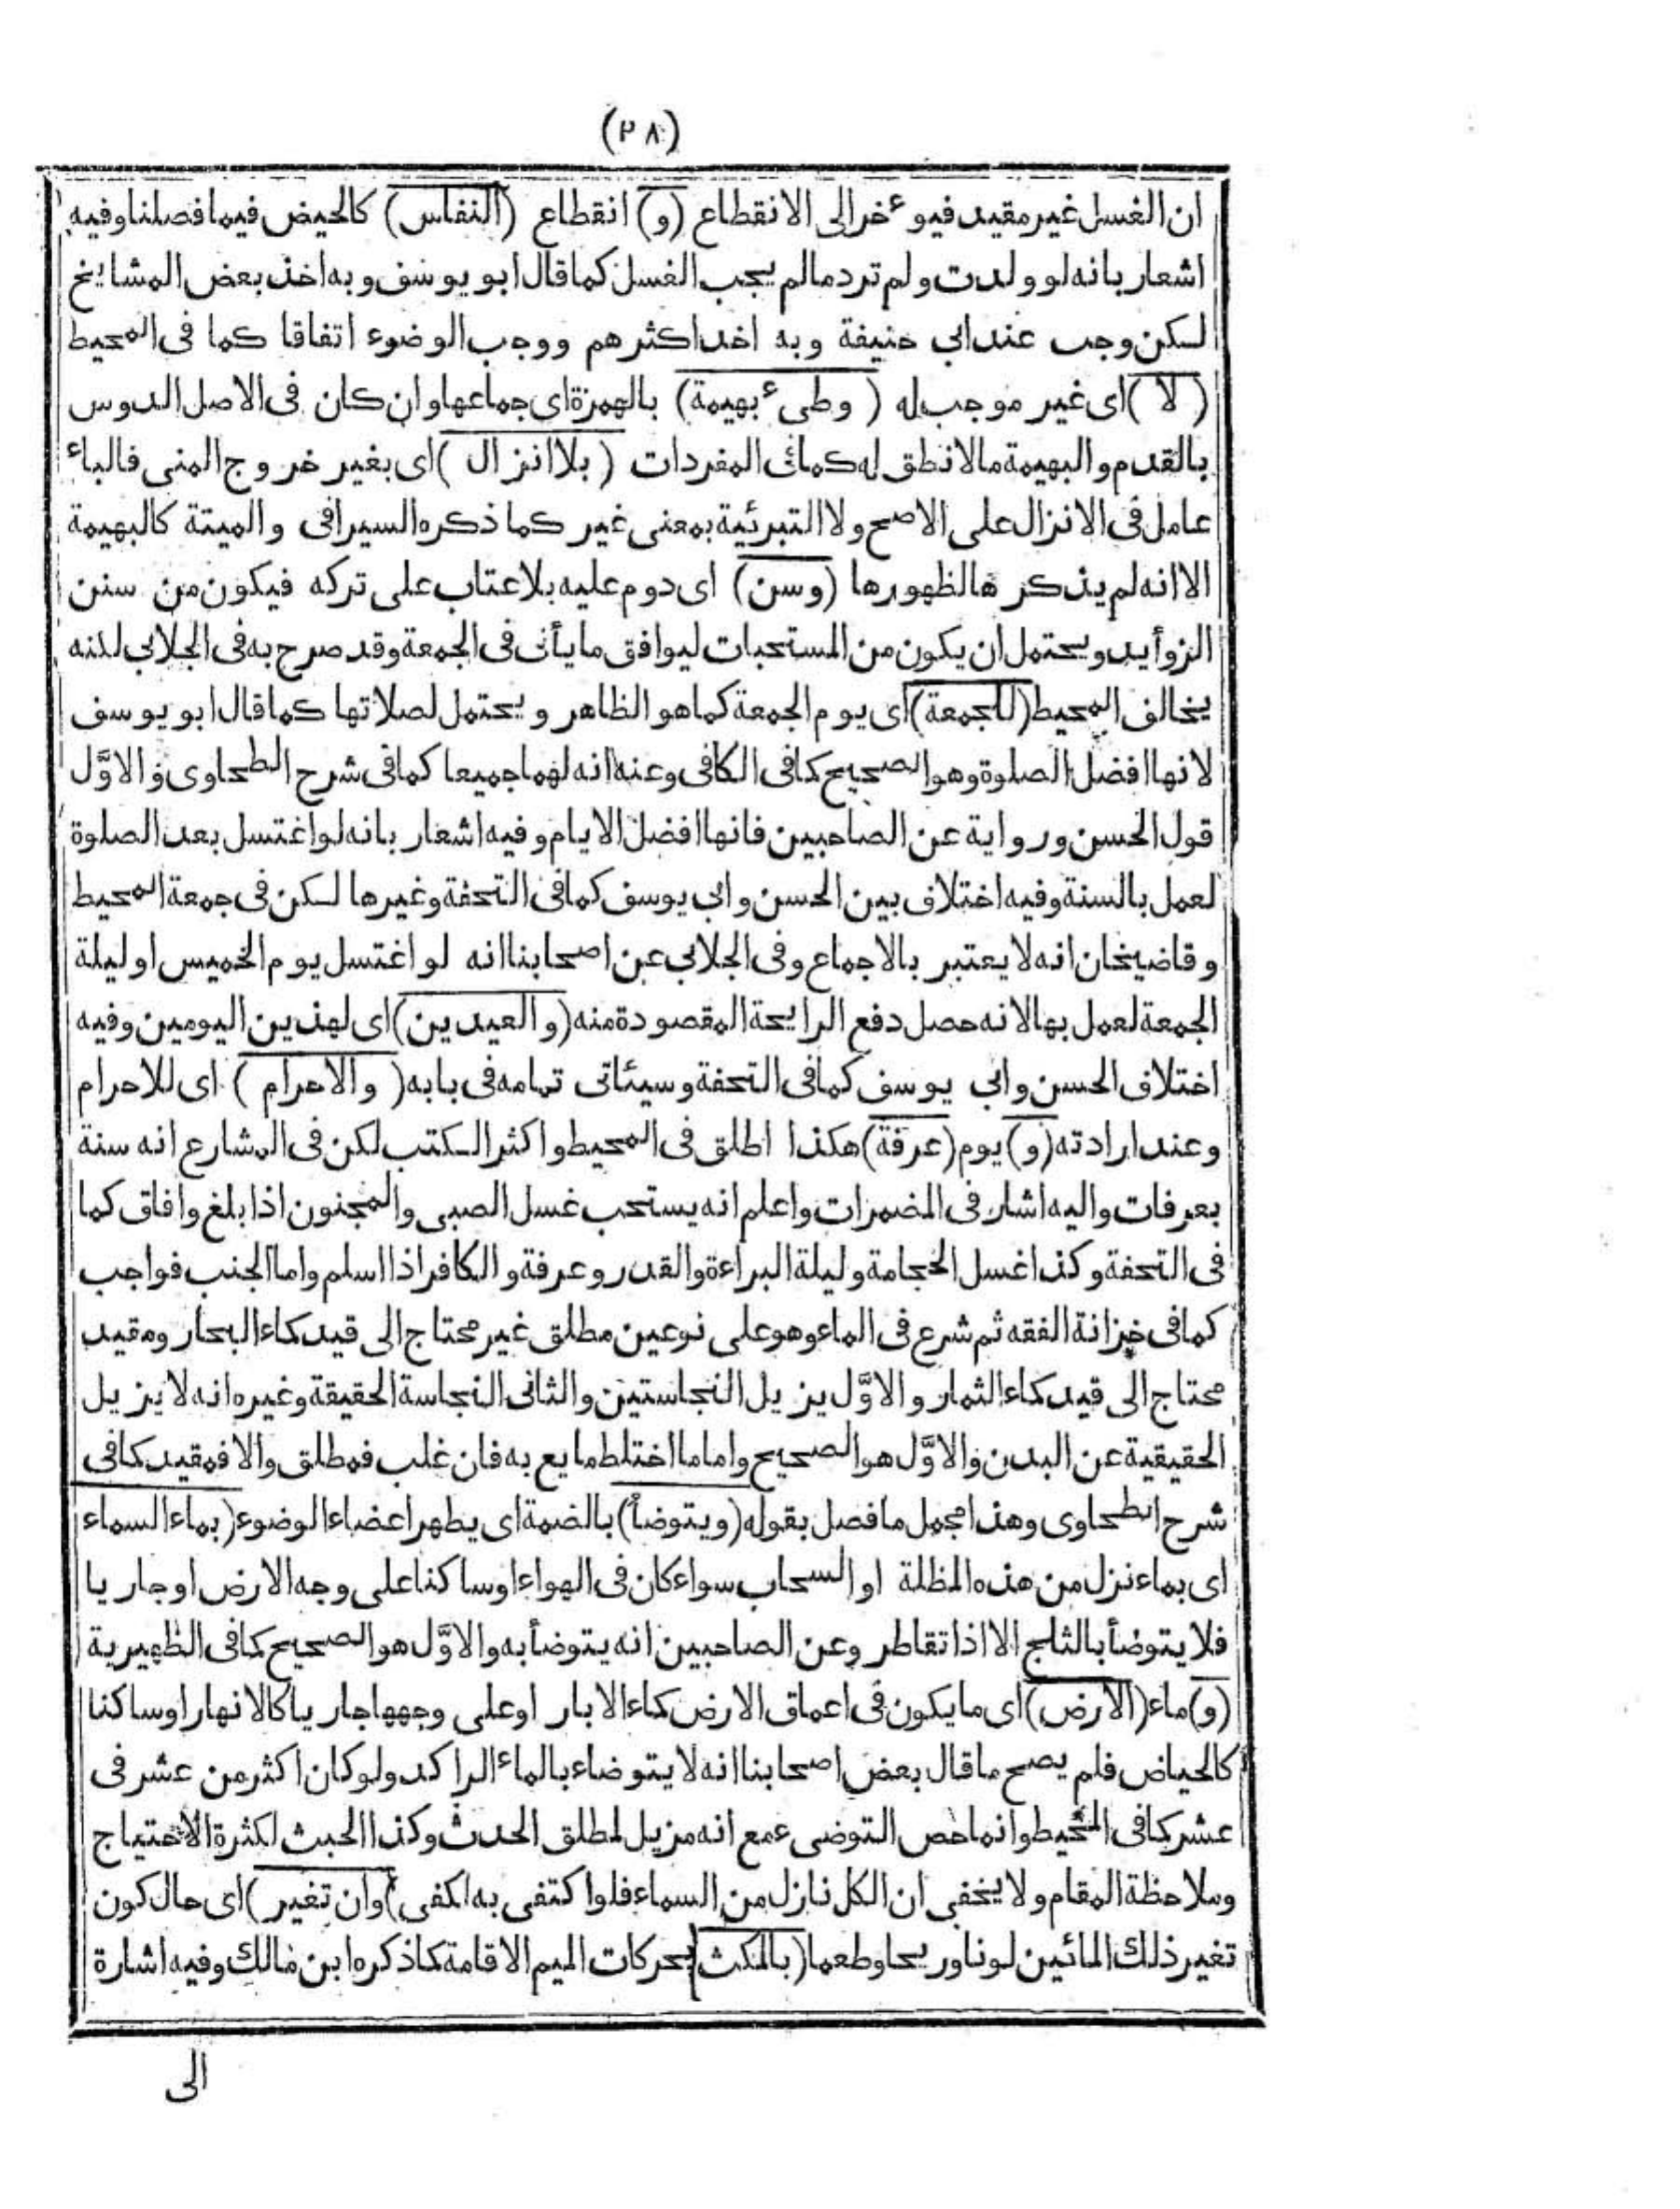 (٢٨)
ان الغسل غير مقيد فيوءخر الى الانقطاع (و) انقطاع (النفاس) كالحيض فيما فصلنا وفيه
اشعار بانه لو ولدت ولم تر دما لم يجب الغسل كما قال ابو يوسف وبه اخذ بعض المشايخ
لكن وجب عند ابي حنيفة وبه اخذ اكثرهم ووجب الوضوء اتفاقا كما فى المحيط
(لا) اى غير موجب له (وطىء بهيمة) بالهمزة اى جماعها وان كان فى الاصل الدوس
بالقدم والبهيمة ما لا نطق له كما فى المفردات (بلا انزال) اى بغير خروج المنى فالباء
عامل فى الانزال على الاصح ولا التبرئية بمعنى غير كما ذكره السيرافى والميتة كالبهيمة
الا انه لم يذكرها لظهورها (وسن) اى دوم عليه بلا عتاب على تركه فيكون من سنن
الزوأيد ويحتمل ان يكون من المستحبات ليوافق ما يأتى فى الجمعة وقد صرح به فى الجلابى لكنه
يخالف المحيط (للجمعة) اى يوم الجمعة كما هو الظاهر ويحتمل لصلاتها كما قال ابو يوسف
لانها افضل الصلوة وهو الصحيح كما فى الكافى وعنه انه لهما جميعا كما فى شرح الطحاوى والاوّل
قول الحسن ورواية عن الصاحبين فانها افضل الايام وفيه اشعار بانه لو اغتسل بعد الصلوة
لعمل بالسنة وفيه اختلاف بين الحسن وابى يوسف كما فى التحفة وغيرها لكن فى جمعة المحيط
وقاضيخان انه لا يعتبر بالاجماع وفى الجلابى عن اصحابنا انه لو اغتسل يوم الخميس او ليلة
الجمعة لعمل بها لانه حصل دفع الرايحة المقصودة منه (والعيدين) اى لهذين اليومين وفيه
اختلاف الحسن وابى يوسف كما فى التحفة وسيئاتى تمامه فى بابه (والاحرام) اى للاحرام
وعند ارادته (و) يوم (عرفة) هكذا اطلق فى المحيط واكثر الكتب لكن فى المشارع انه سنة
بعرفات واليه اشار فى المضمرات واعلم انه يستحب غسل الصبى والمجنون اذا بلغ وافاق كما
فى التحفة وكذا غسل الحجامة وليلة البراءة والقدر وعرفة والكافر اذا اسلم واما الجنب فواجب
كما فى خزانة الفقه ثم شرع فى الماء وهو على نوعين مطلق غير محتاج الى قيد كماء البحار ومقيد
محتاج الى قيد كماء الثمار والاوّل يزيل النجاستين والثانى النجاسة الحقيقة وغيره انه لا يزيل
الحقيقية عن البدن والاوّل هو الصحيح واما ما اختلط مايع به فان غلب فمطلق والا فمقيد كما فى
شرح الطحاوى وهذا مجمل ما فصل بقوله (ويتوضأ) بالضمة اى يطهر اعضاء الوضوء (بماء السماء
اى بماء نزل من هذه المظلة او السحاب سواء كان فى الهواء او ساكنا على وجه الارض او جاريا
فلا يتوضأ بالثلج الا اذا تقاطر وعن الصاحبين انه يتوضأ به والاوّل هو الصحيح كما فى الظهيرية
(و) ماء (الارض) اى ما يكون فى اعماق الارض كماء الابار او على وجهها جاريا كالانهار او ساكنا
كالحياض فلم يصح ما قال بعض اصحابنا انه لا يتوضاء بالماء الراكد ولو كان اكثر من عشر فى
عشر كما فى المحيط وانما خص التوضىء مع انه مزيل لمطلق الحدث وكذا الخبث لكثرة الاحتياج
وملاحظة المقام ولا يخفى ان الكل نازل من السماء فلو اكتفى به لكفى (وان تغير) اى حال كون
تغير ذلك المائين لونا وريحا وطعما (بالمكث) بحركات الميم الاقامة كما ذكره ابن مالك وفيه اشارة
الى